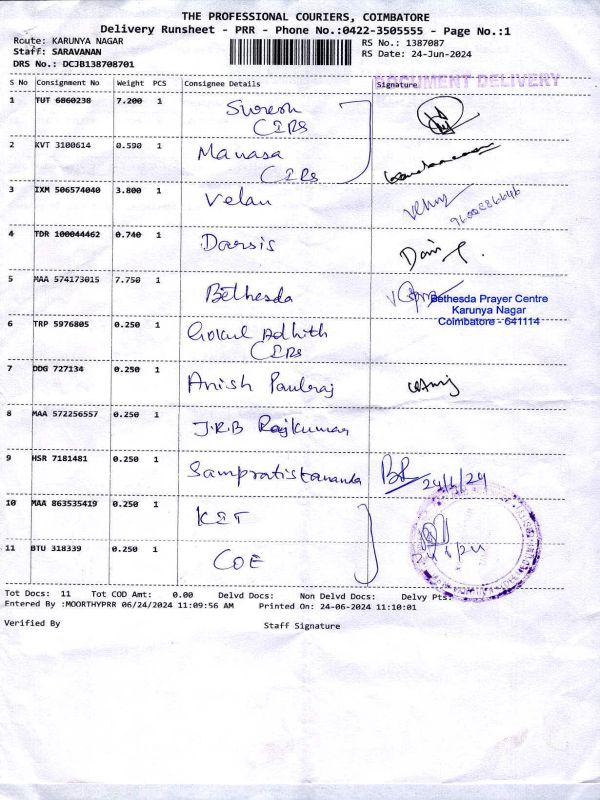 THE PROFESSIONAL COURIERS, COIMBATORE
Delivery Runsheet - PRR - Phone No.:0422-3505555 - Page No.:1
Route: KARUNYA NAGAR RS No.: 1387087
Staff: SARAVANAN RS Date: 24-Jun-2024
DRS No.: DCJB138708701
DOCUMENT DELIVERY
S No Consignment No Weight PCS Consignee Details Signature
1 TUT 6860238 7.200 1 Suresh
CIRS
2 KVT 3100614 0.590 1 Manasa
CIRS
3 IXM 506574040 3.800 1 Velan
4 TDR 100044462 0.740 1 Darsis
5 MAA 574173015 7.750 1 Bethesda
Bethesda Prayer Centre
Karunya Nagar
Coimbatore - 641114
6 TRP 5976805 0.250 1 Gokul Adhith
CIRS
7 DDG 727134 0.250 1 Anish Paulraj
8 MAA 572256557 0.250 1 J.R.B Rajkumar
9 HSR 7181481 0.250 1 Sampratistananda 24/6/24
10 MAA 863535419 0.250 1 KET
11 BTU 318339 0.250 1 COE
Tot Docs: 11 Tot COD Amt: 0.00 Delvd Docs: Non Delvd Docs: Delvy Pts:
Entered By :MOORTHYPRR 06/24/2024 11:09:56 AM Printed On: 24-06-2024 11:10:01
Verified By Staff Signature